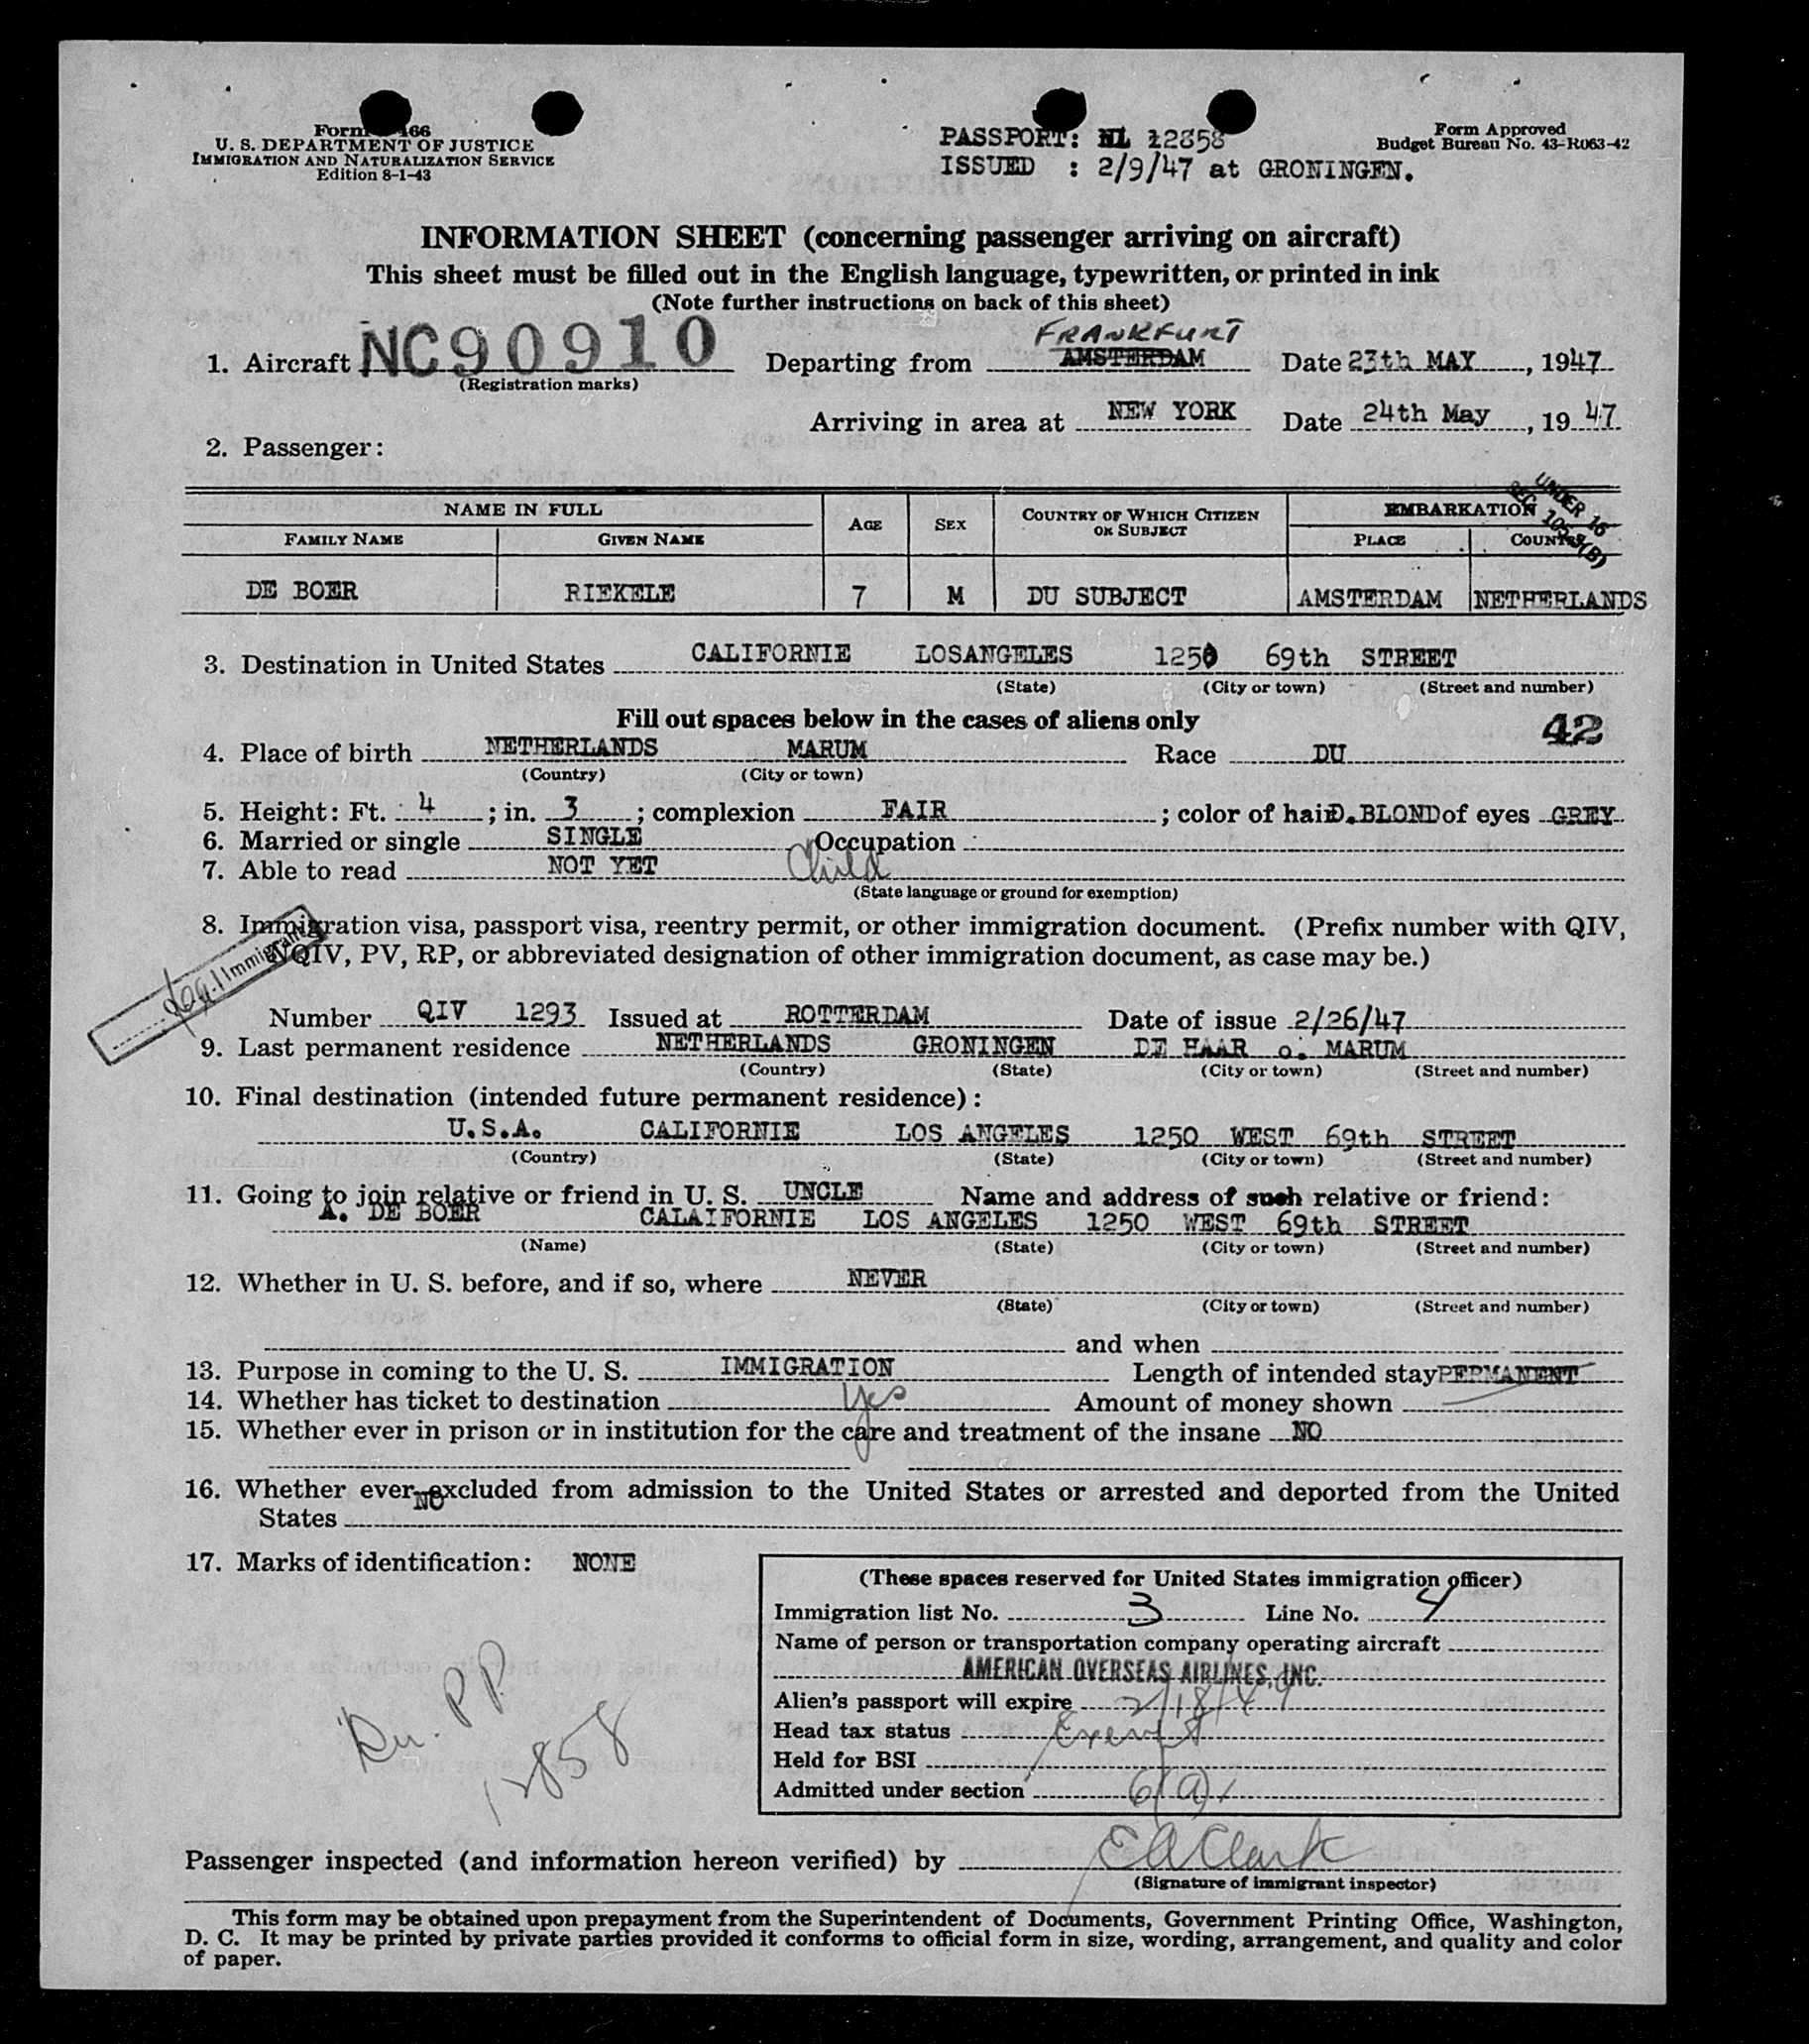 Form 466
U. S. DEPARTMENT OF JUSTICE
IMMIGRATION AND NATURALIZATION SERVICE
Edition 8-1-43
PASSPORT: NL 12858
ISSUED : 2/9/47 at GRONINGEN.
Form Approved
Budget Bureau No. 43-R063-42
INFORMATION SHEET (concerning passenger arriving on aircraft)
This sheet must be filled out in the English language, typewritten, or printed in ink
(Note further instructions on back of this sheet)
FRANKFURT
1. Aircraft NC90910 Departing from AMSTERDAM Date 23th MAY, 1947
(Registration marks)
Arriving in area at NEW YORK Date 24th May, 19 47
2. Passenger:
UNDER 16
SEC 105-3(B)
NAME IN FULL AGE SEX COUNTRY OF WHICH CITIZEN OR SUBJECT EMBARKATION
FAMILY NAME GIVEN NAME PLACE COUNTRY
DE BOER RIEKELE 7 M DU SUBJECT AMSTERDAM NETHERLANDS
3. Destination in United States CALIFORNIE LOSANGELES 1250 69th STREET
(State) (City or town) (Street and number)
Fill out spaces below in the cases of aliens only 42
4. Place of birth NETHERLANDS MARUM Race DU
(Country) (City or town)
5. Height: Ft. 4; in. 3; complexion FAIR; color of hair D.BLOND of eyes GREY
6. Married or single SINGLE Occupation
7. Able to read NOT YET Child
(State language or ground for exemption)
8. Immigration visa, passport visa, reentry permit, or other immigration document. (Prefix number with QIV,
NQIV, PV, RP, or abbreviated designation of other immigration document, as case may be.)
Immigrant
Number QIV 1293 Issued at ROTTERDAM Date of issue 2/26/47
9. Last permanent residence NETHERLANDS GRONINGEN DE HAAR o. MARUM
(Country) (State) (City or town) (Street and number)
10. Final destination (intended future permanent residence):
U.S.A. CALIFORNIE LOS ANGELES 1250 WEST 69th STREET
(Country) (State) (City or town) (Street and number)
11. Going to join relative or friend in U. S. UNCLE Name and address of such relative or friend:
A. DE BOER CALAIFORNIE LOS ANGELES 1250 WEST 69th STREET
(Name) (State) (City or town) (Street and number)
12. Whether in U. S. before, and if so, where NEVER
(State) (City or town) (Street and number)
and when
13. Purpose in coming to the U. S. IMMIGRATION Length of intended stay PERMANENT
14. Whether has ticket to destination Yes Amount of money shown
15. Whether ever in prison or in institution for the care and treatment of the insane NO
16. Whether ever excluded from admission to the United States or arrested and deported from the United
States NO
17. Marks of identification: NONE
(These spaces reserved for United States immigration officer)
Immigration list No. 3 Line No. 4
Name of person or transportation company operating aircraft
AMERICAN OVERSEAS AIRLINES, INC.
Alien's passport will expire 2/18/49
Head tax status Exempt
Held for BSI
Admitted under section 6(a)1
Du. PP
12858
Passenger inspected (and information hereon verified) by E A Clark
(Signature of immigrant inspector)
This form may be obtained upon prepayment from the Superintendent of Documents, Government Printing Office, Washington,
D. C. It may be printed by private parties provided it conforms to official form in size, wording, arrangement, and quality and color
of paper.